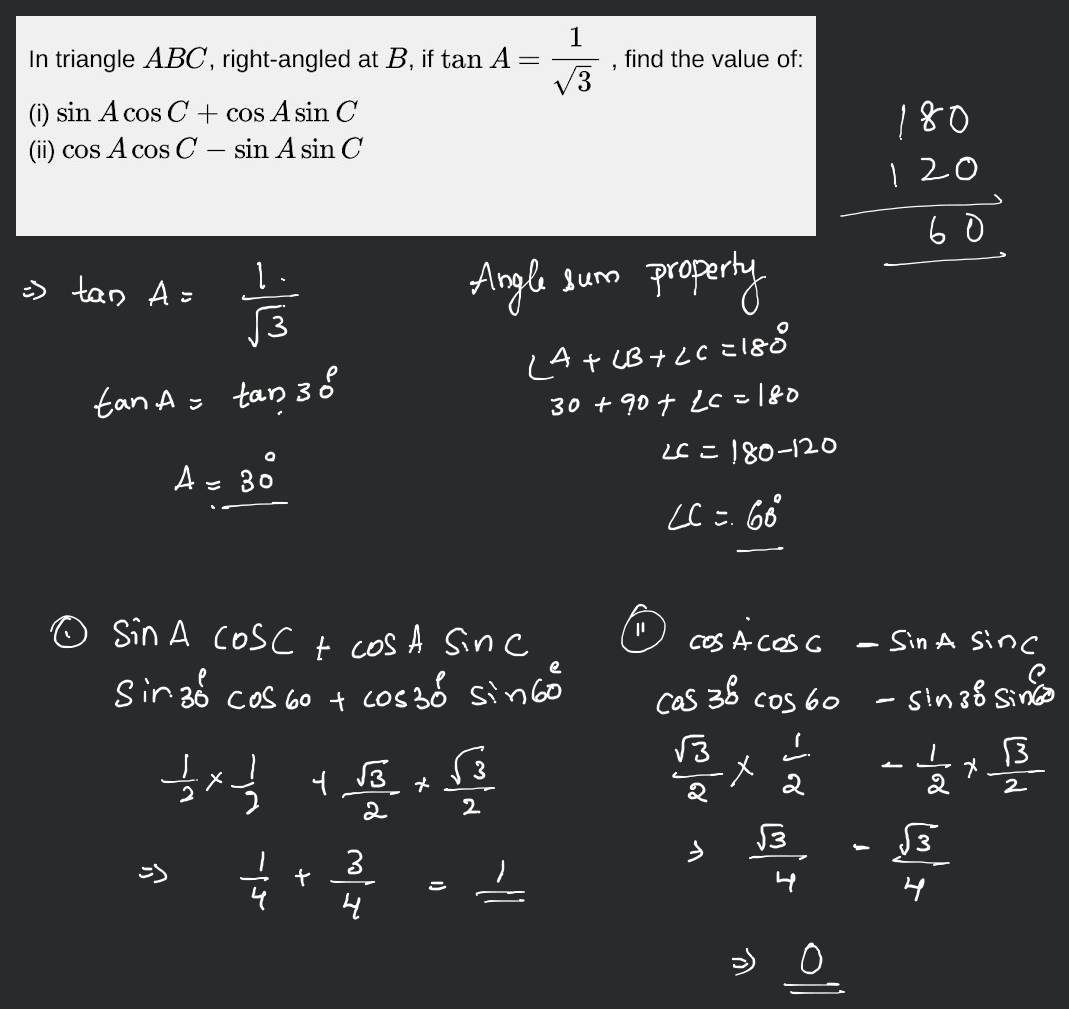 In triangle ABC, right-angled at B, if tan A = 1/√3 , find the value of:
(i) sin A cos C + cos A sin C
(ii) cos A cos C − sin A sin C
180
120
60
⇒ tan A = 1/√3
tan A = tan 30°
A = 30°
Angle sum property
∠A + ∠B + ∠C = 180°
30 + 90 + ∠C = 180
∠C = 180-120
∠C = 60°
(i) Sin A cos C + cos A Sin C
Sin 30° cos 60 + cos 30° sin 60°
1/2 × 1/2 + √3/2 × √3/2
⇒ 1/4 + 3/4 = 1
(ii) cos A cos C - Sin A Sin C
cos 30° cos 60 - sin 30° sin 60°
√3/2 × 1/2 - 1/2 × √3/2
⇒ √3/4 - √3/4
⇒ 0